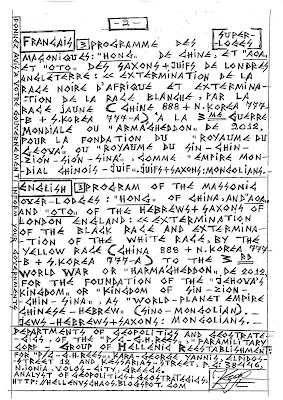 - 2 -
FRANÇAIS 3 PROGRAMME DES SUPER-LOGES
MAÇONIQUES: "HONG" DE CHINE, ET "AQA"
ET "OTO" DES SAXONS + JUIFS DE LONDRES
ANGLETERRE: << EXTERMINATION DE LA
RACE NOIRE D'AFRIQUE ET EXTERMINA-
TION DE LA RACE BLANCHE, PAR LA
RACE JAUNE (CHINE 888 + N.KOREA 777-
B + S.KOREA 777-A) À LA 3ME GUERRE
MONDIALE OU "ARMAGHEDDON" DE 2012,
POUR LA FONDATION DU "ROYAUME DU
GEOVA" OU "ROYAUME DU SIN-CHIN-
ZION-SION-SINA", COMME "EMPIRE MON-
DIAL CHINOIS-JUIF". JUIFS + SAXONS: MONGOLIANS.
ENGLISH 3 PROGRAM OF THE MASSONIC
OVER-LODGES: "HONG" OF CHINA, AND "AQA"
AND "OTO" OF THE HEBREWS + SAXONS OF
LONDON ENGLAND: << EXTERMINATION
OF THE BLACK RACE AND EXTERMINA-
TION OF THE WHITE RACE, BY THE
YELLOW RACE (CHINA 888 + N.KOREA 777-
B + S.KOREA 777-A) TO THE 3RD
WORLD WAR OR "HARMAGHEDDON", DE 2012,
FOR THE FOUNDATION OF THE "JEHOVA'S
KINGDOM" OR "KINGDOM OF SIN-ZION-
CHIN-SINA", AS "WORLD-PLANET EMPIRE
CHINESE-HEBREW" (SINO-MONGOLIAN).
JEWS-HEBREWS + SAXONS: MONGOLIANS.
DEPARTMENT OF GEOPOLITICS AND GEOSTRATE-
GICS, OF THE "P/G-G.H.REES", "PARAMILITARY
CORP-GROUP OF HELLENIC REESTABLISHMENT".
FOR "P/G-G.H.REES", KARA-GEORGE YANNIS, ELPIDOS-
STREET 12 AND KESSARIAS-STREET, P.C: 38446,
N.IONIA, VOLOS-CITY, GREECE.
ANALYST OF GEOPOLITICS-GEOSTRATEGICS.
HTTP://HELLENVSCHAOS.BLOGSPOT.COM